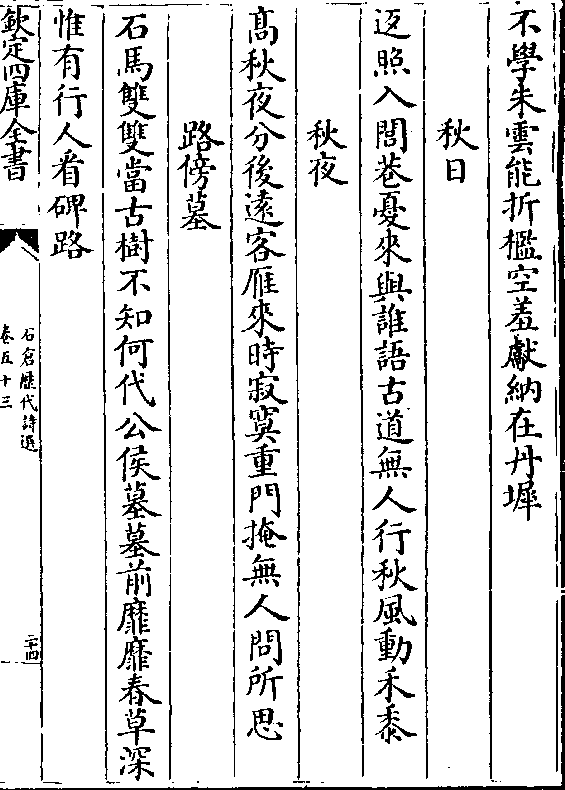 不學朱雲能折檻空羞獻納在丹墀
秋日
返照入閭巷憂來與誰語古道無人行秋風動禾黍
秋夜
髙秋夜分後遠客雁來時寂寞重門掩無人問所思
路傍墓
石馬雙雙當古樹不知何代公侯墓墓前靡靡春草深
惟有行人看碑路
欽定四庫全書
石倉歴代詩選
卷五十三
二十四